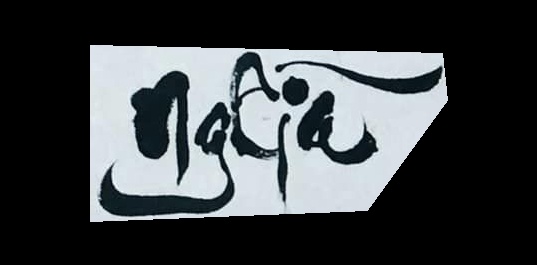 Nghĩa